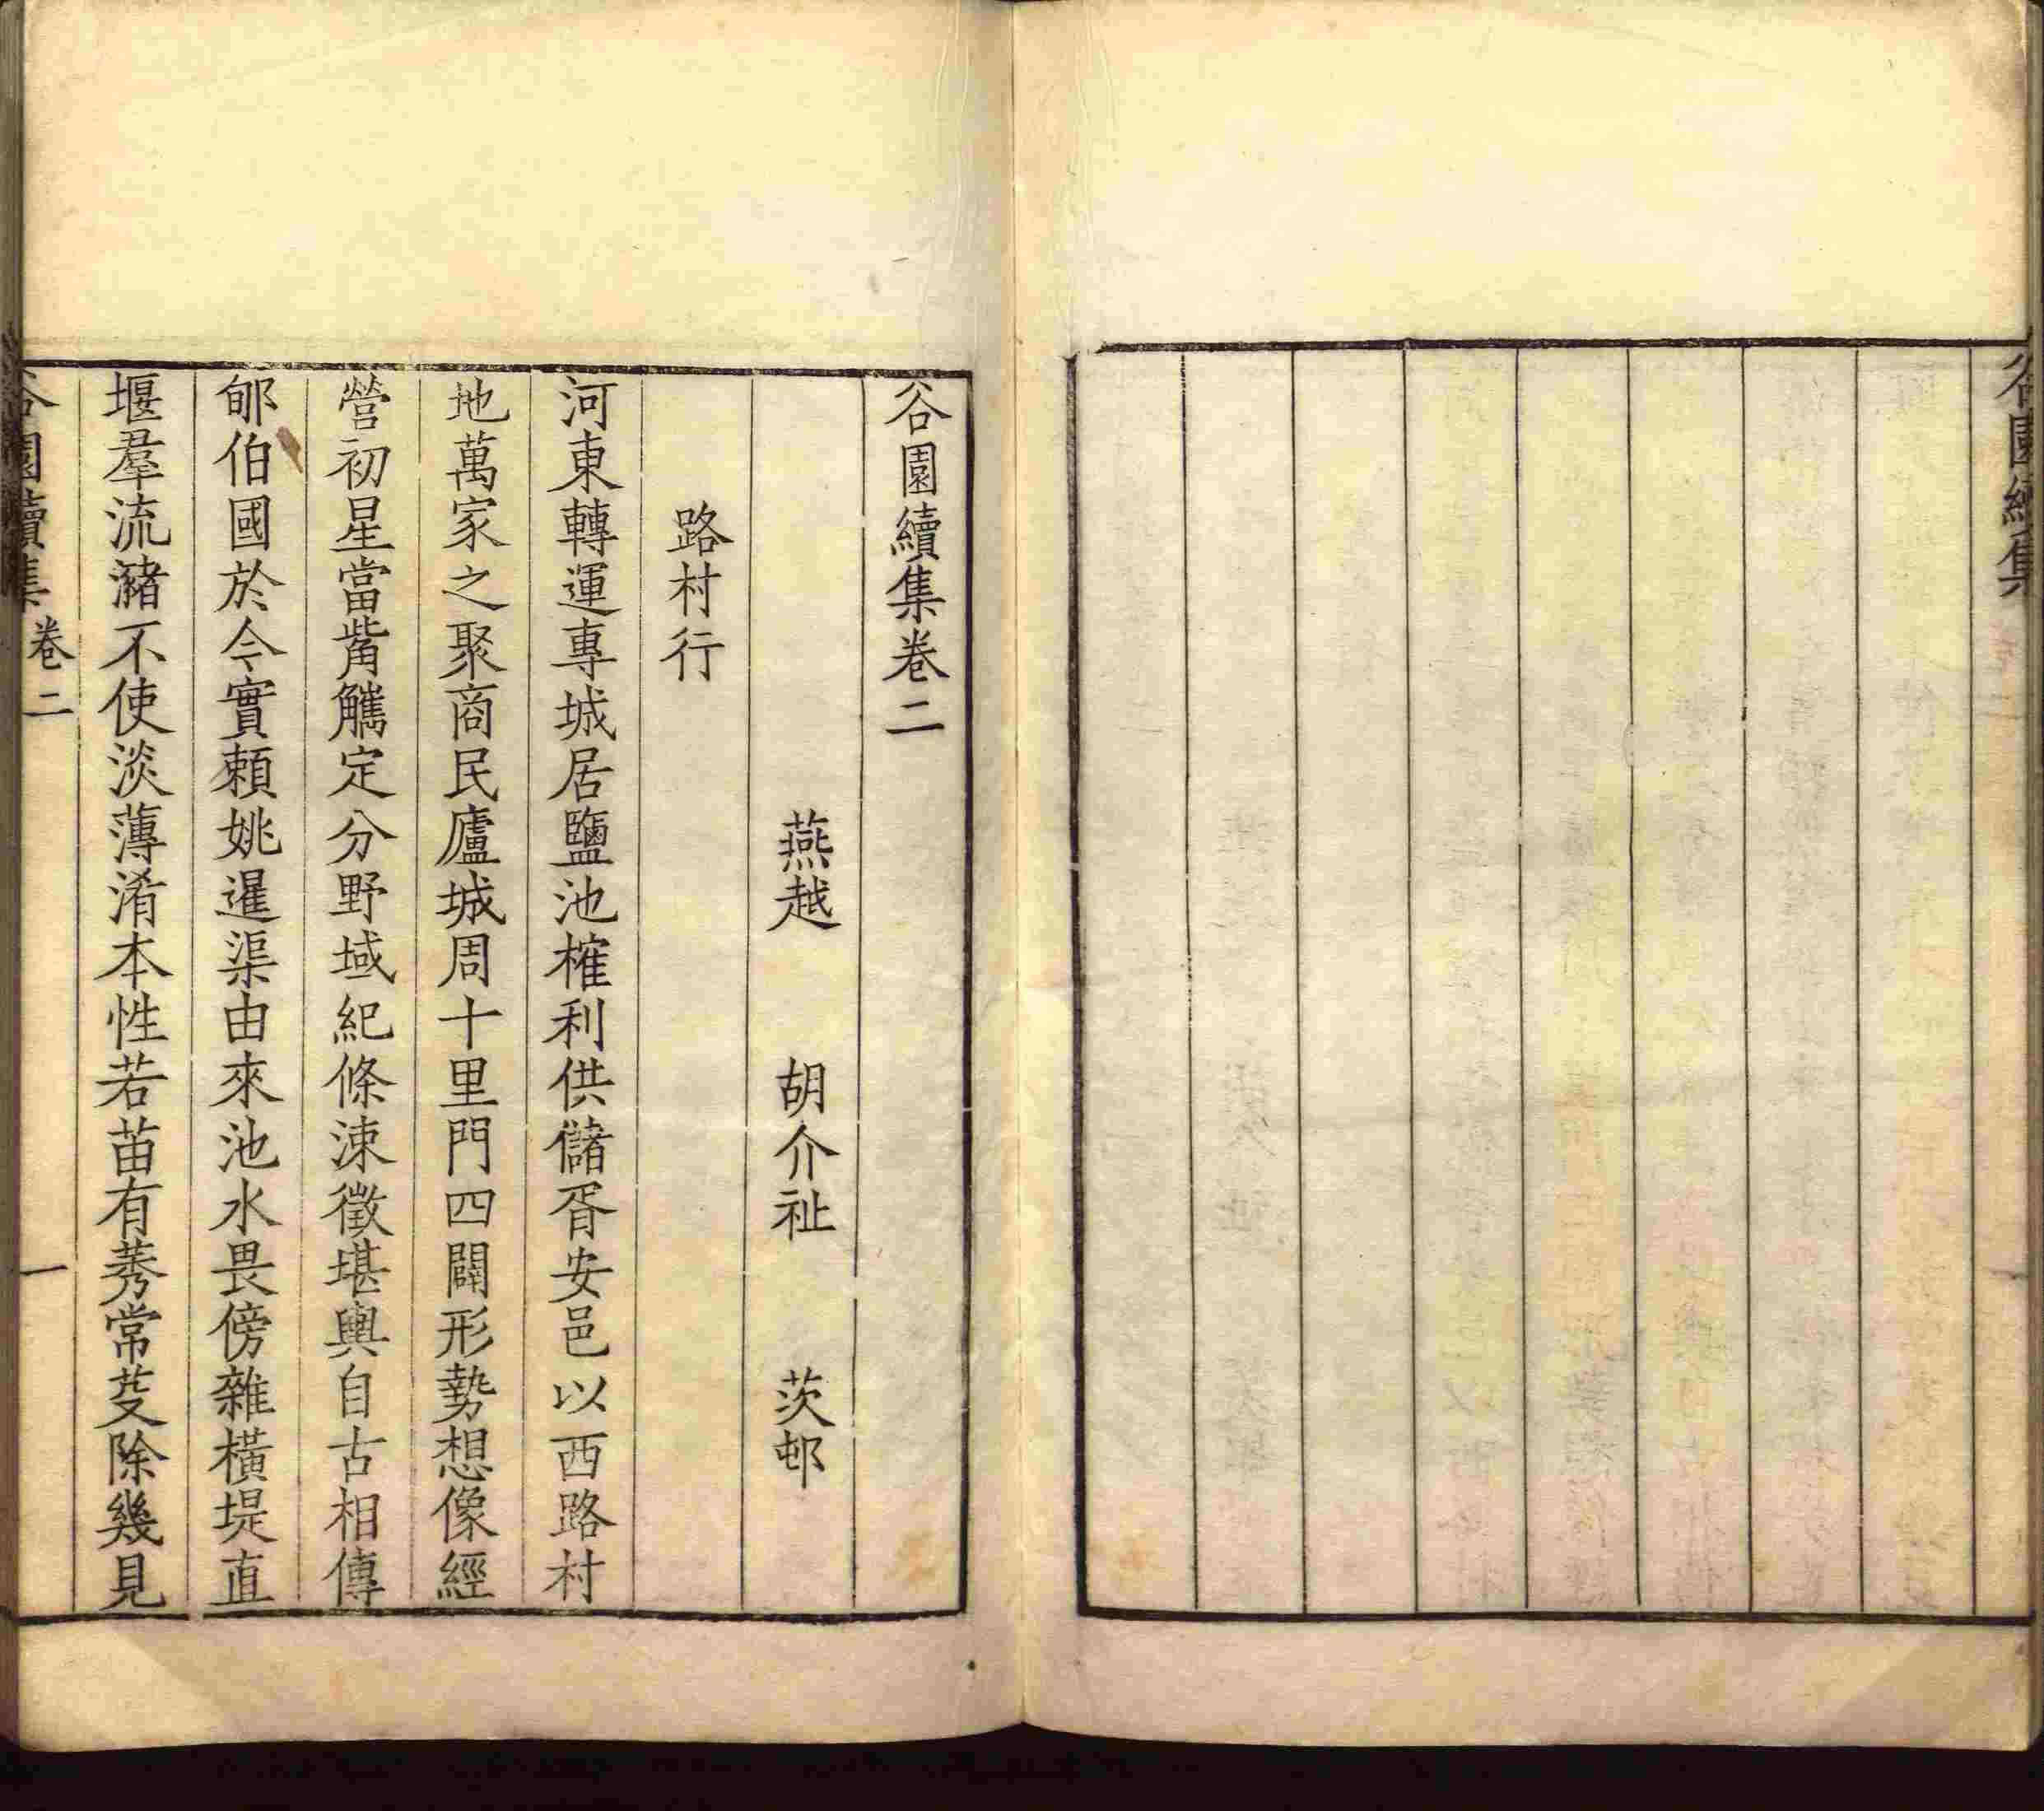 谷園續集
谷園續集卷二
燕越 胡介祉 茨邨
路村行
河東轉運專城居鹽池榷利供儲胥安邑以西路村
地萬家之聚商民廬城周十里門四闢形勢想像經
營初星當觜觿定分野域紀條涑徵堪輿自古相傳
郇伯國於今實賴姚暹渠由來池水畏傍雜橫堤直
堰羣流瀦不使淡薄淆本性若苗有莠常芟除幾見
谷園續集 卷二 一